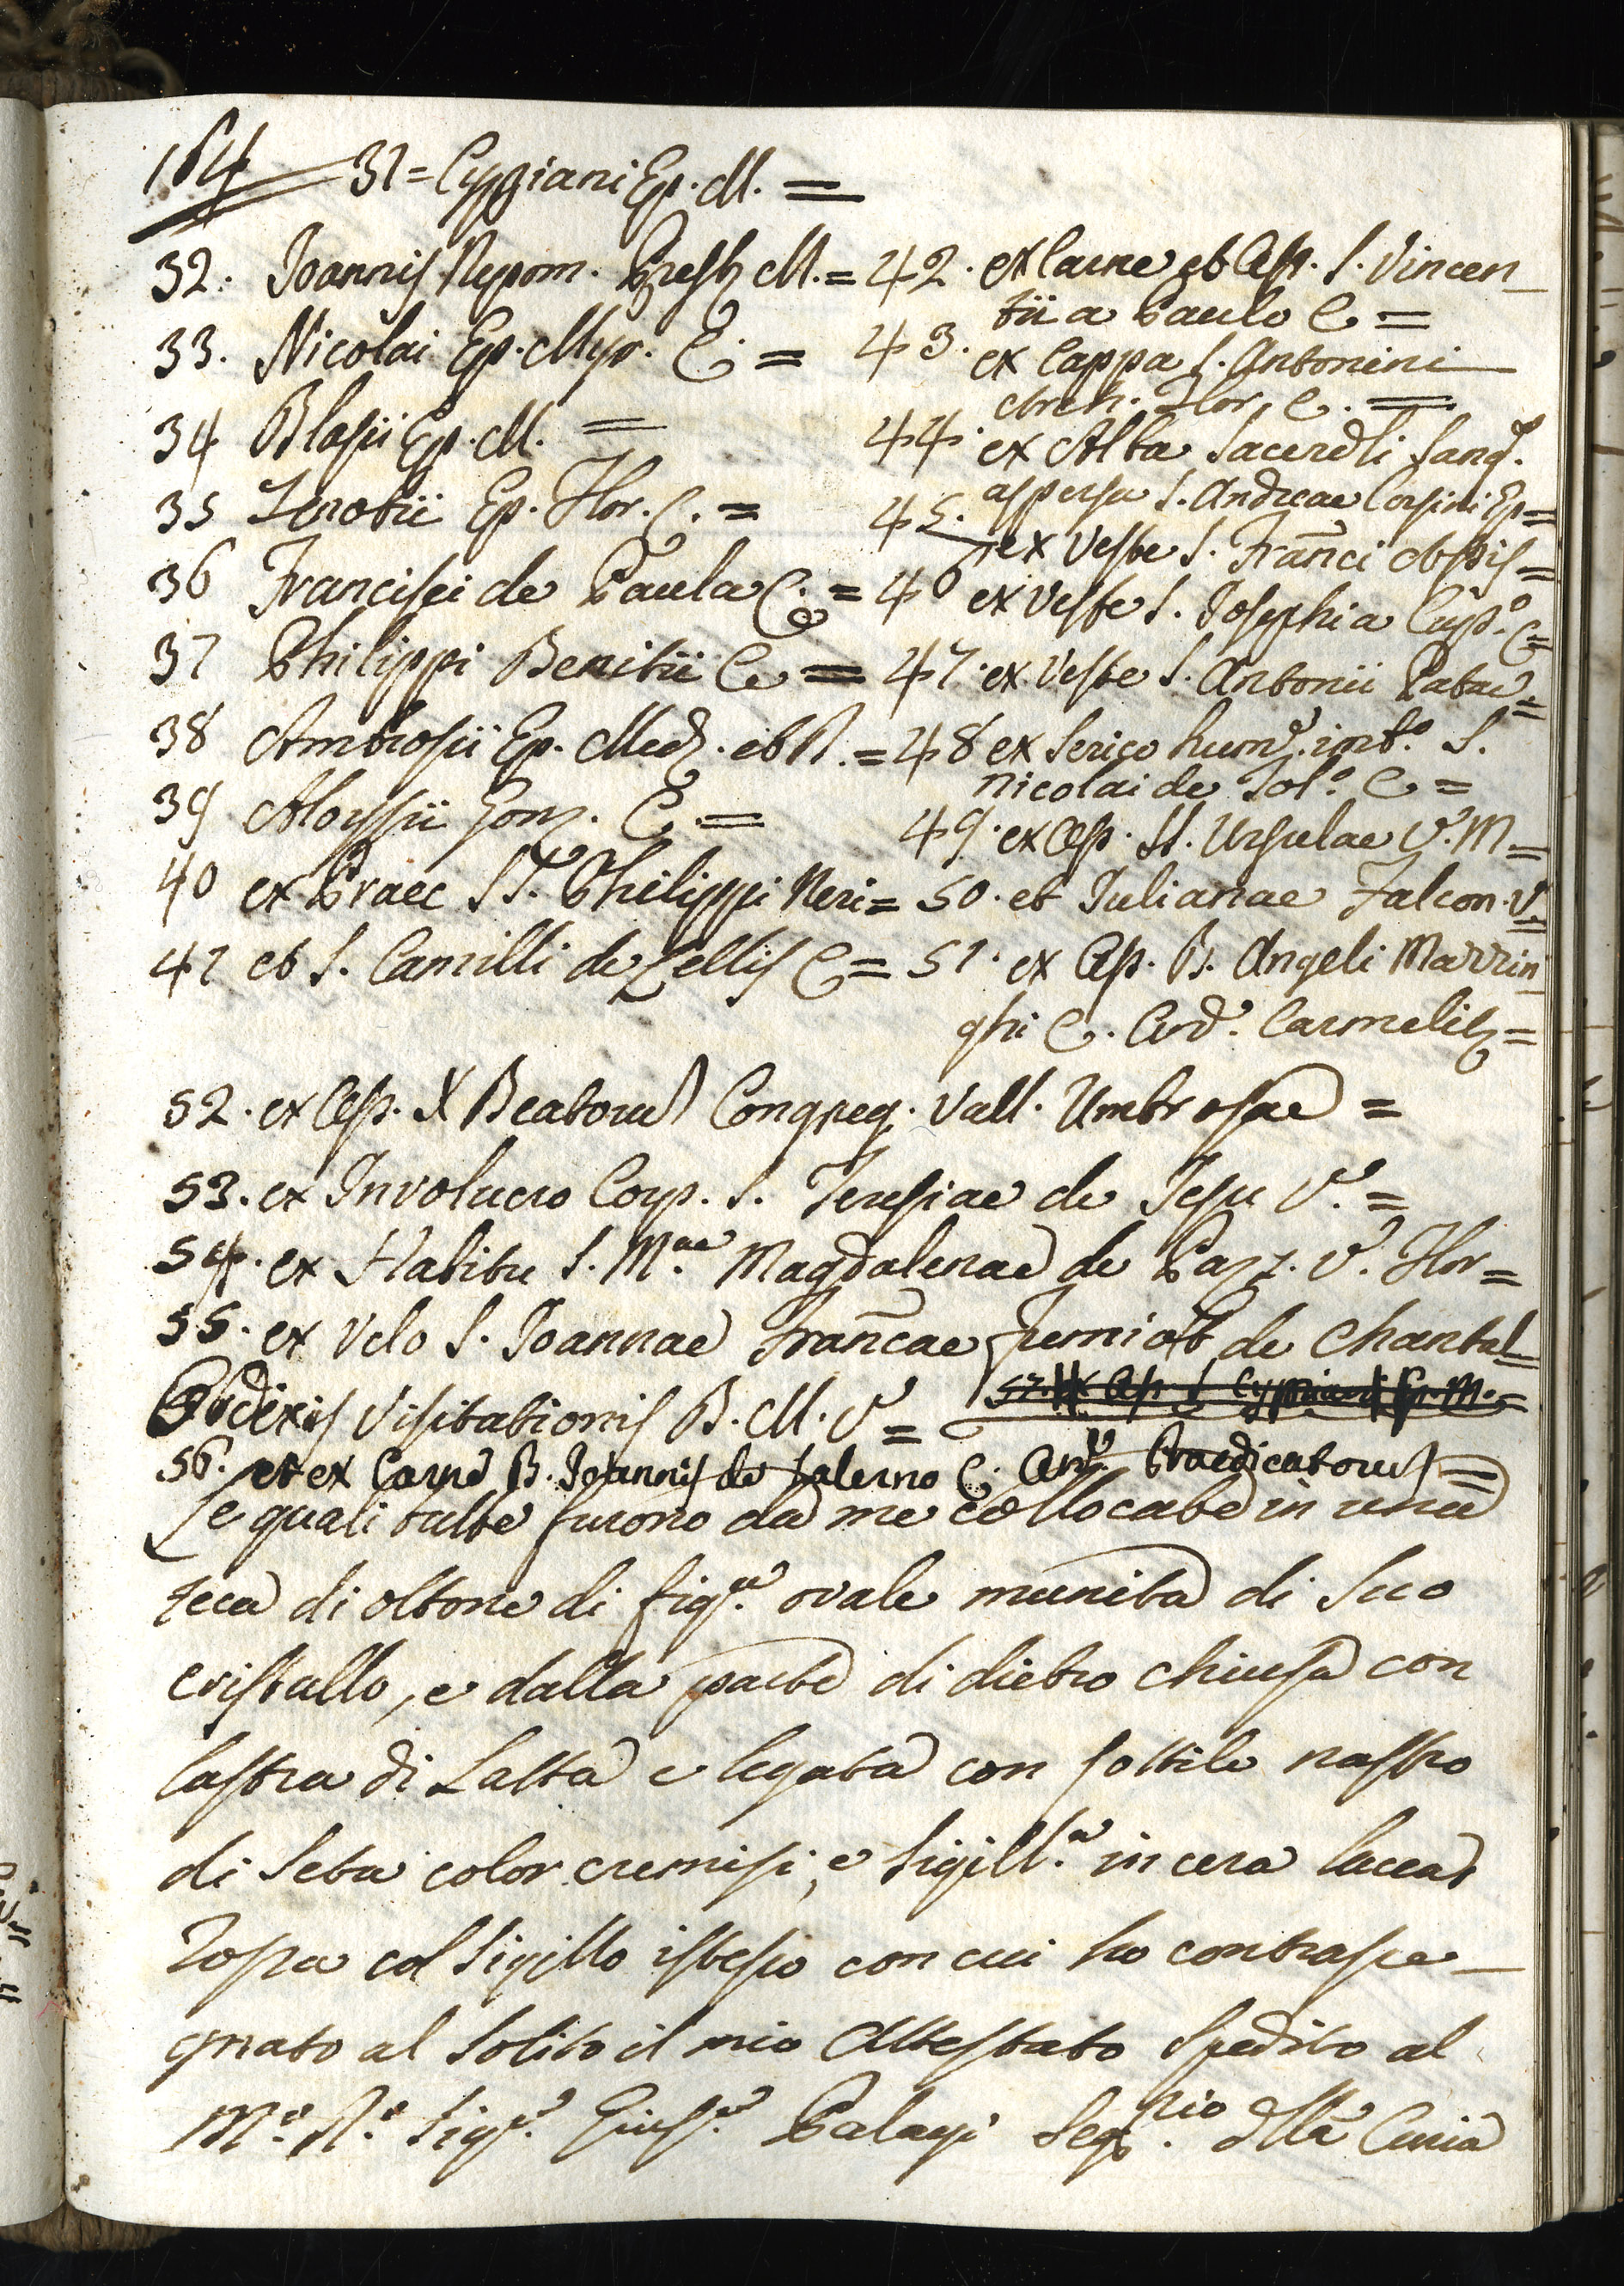 164 31 = Cypriani Ep. M. =
32. Joannis Nepom. Presb M. =
33. Nicolai Ep. Myr. C. =
34 Blasii Ep. M. =
35 Zenobii Ep. Flor. C. =
36 Francisci de Paula C. =
37 Philippi Benitii C =
38 Ambrosii Ep. Med. et D. =
39 Aloysii Gonz. C. =
40 ex Praec SS. Philippi Neri =
41 et S. Camilli de Lellis C =
42. ex Carne et Oss. S. Vincen_
tii a Paulo C =
43. ex Cappa S. Antonini
Arch. Flor. C. =
44. ex Alba Sacerdli Sang.
aspersa S. Andreae Corsini Ep =
45. ex Veste S. Franci Assis =
46 ex Veste S. Josephi a Cup.o C =
47. ex Veste S. Antonii Patav. =
48 ex Serico hum.e imb.o S.
Nicolai de Tol.o C =
49. ex Oss. SS. Ursulae V. M =
50. et Julianae Falcon. V. =
51. ex Oss. B. Angeli Mazzin
ghi C. Ord. Carmelit =
52. ex Oss. X Beatorum Congreg. Vall. Umbrosae =
53. ex Involucro Corp. S. Teresiae de Jesu V. =
54. ex Habitu S. M.ae Magdalenae de Pazz. V. Flor =
55. ex Velo S. Joannae Francae Fremiot de Chantal =
Ordinis Visitationis B. M. V = 57. ex Oss. S. Cypriani Ep. M. =
56. et ex Carne B. Joannis de Salerno C. Ord. Praedicatorum =
Le quali tutte furono da me collocate in una
teca di ottone di fig.a ovale munita di suo
cristallo, e dalla parte di dietro chiusa con
lastra di Latta e legata con sottile nastro
di Seta color cremisi, e Sigill.a in cera lacca
rossa col Sigillo istesso con cui ho contrasse_
gnato al solito il mio Attestato spedito al
M.o R.o Sig.r Gius.e Palagi Seg.rio della Curia